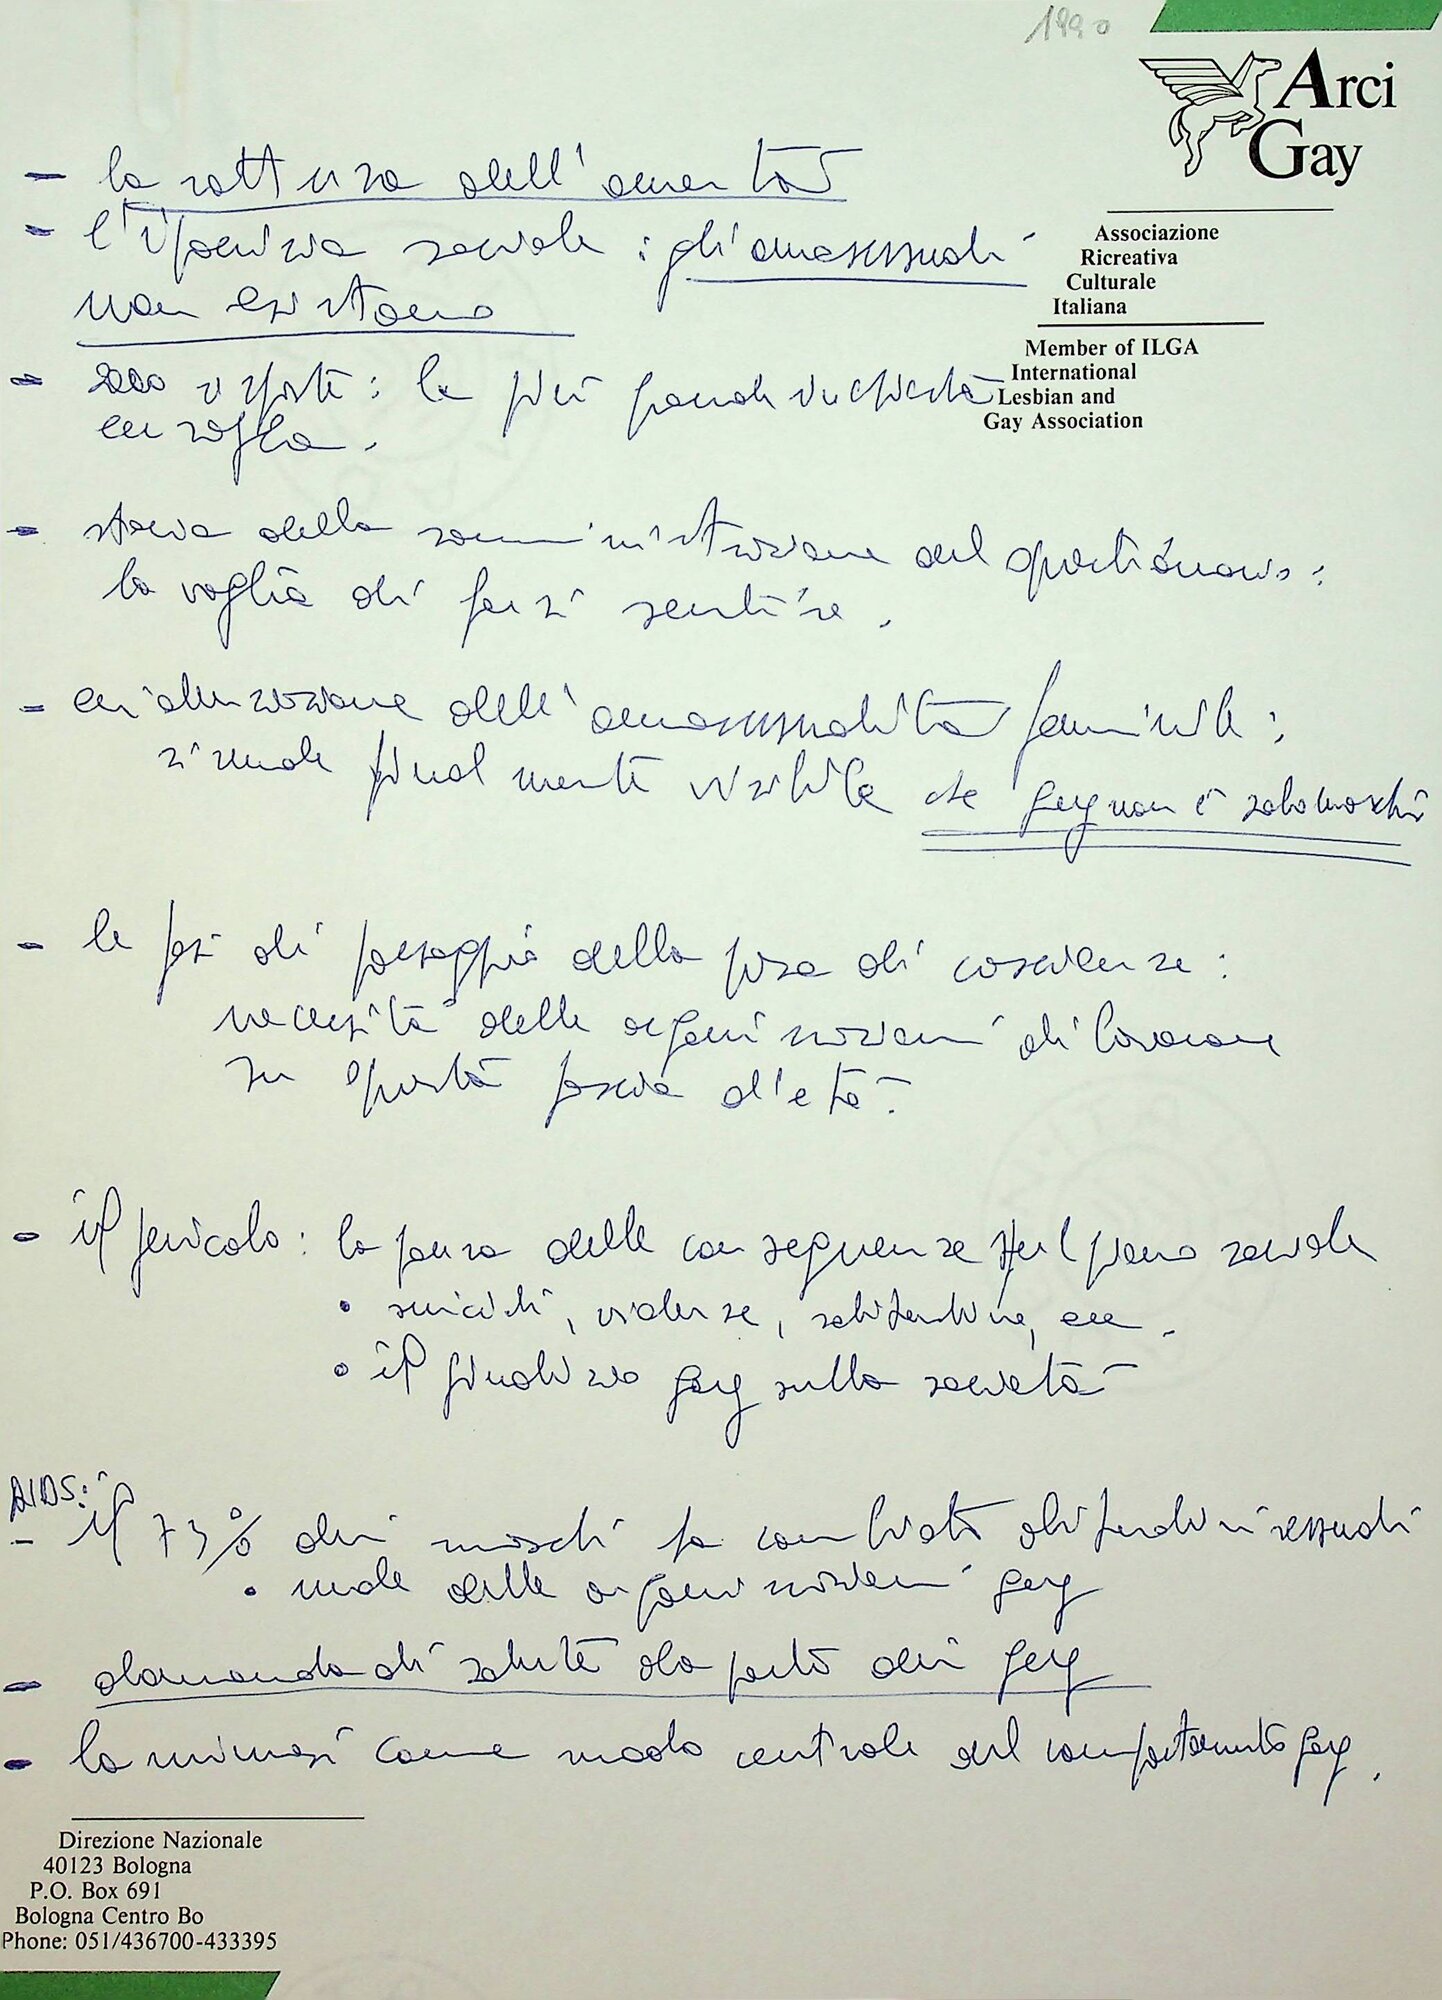 1990
Arci
Gay
Associazione
Ricreativa
Culturale
Italiana
Member of ILGA
International
Lesbian and
Gay Association
- la rottura dell'omertà
- l'ipocrisia sociale : gli omosessuali
non esistono
- 2000 risposte : la più grande inchiesta
europea.
- storia della somministrazione del questionario :
la voglia di farsi sentire.
- evidenziazione dell'omosessualità femminile :
si rende finalmente visibile che gay non è solo maschi
- le fasi di passaggio della presa di coscienza :
necessità delle organizzazioni di lavorare
su questa fascia d'età.
- il pericolo : la paura delle conseguenze sul piano sociale
• suicidi, violenze, solitudine, ecc.
• il giudizio gay sulla società
AIDS:
- il 73% dei maschi ha cambiato abitudini sessuali
• ruolo delle organizzazioni gay
- domanda di salute da parte dei gay
- la mimesi come modo centrale del comportamento gay.
Direzione Nazionale
40123 Bologna
P.O. Box 691
Bologna Centro Bo
Phone: 051/436700-433395